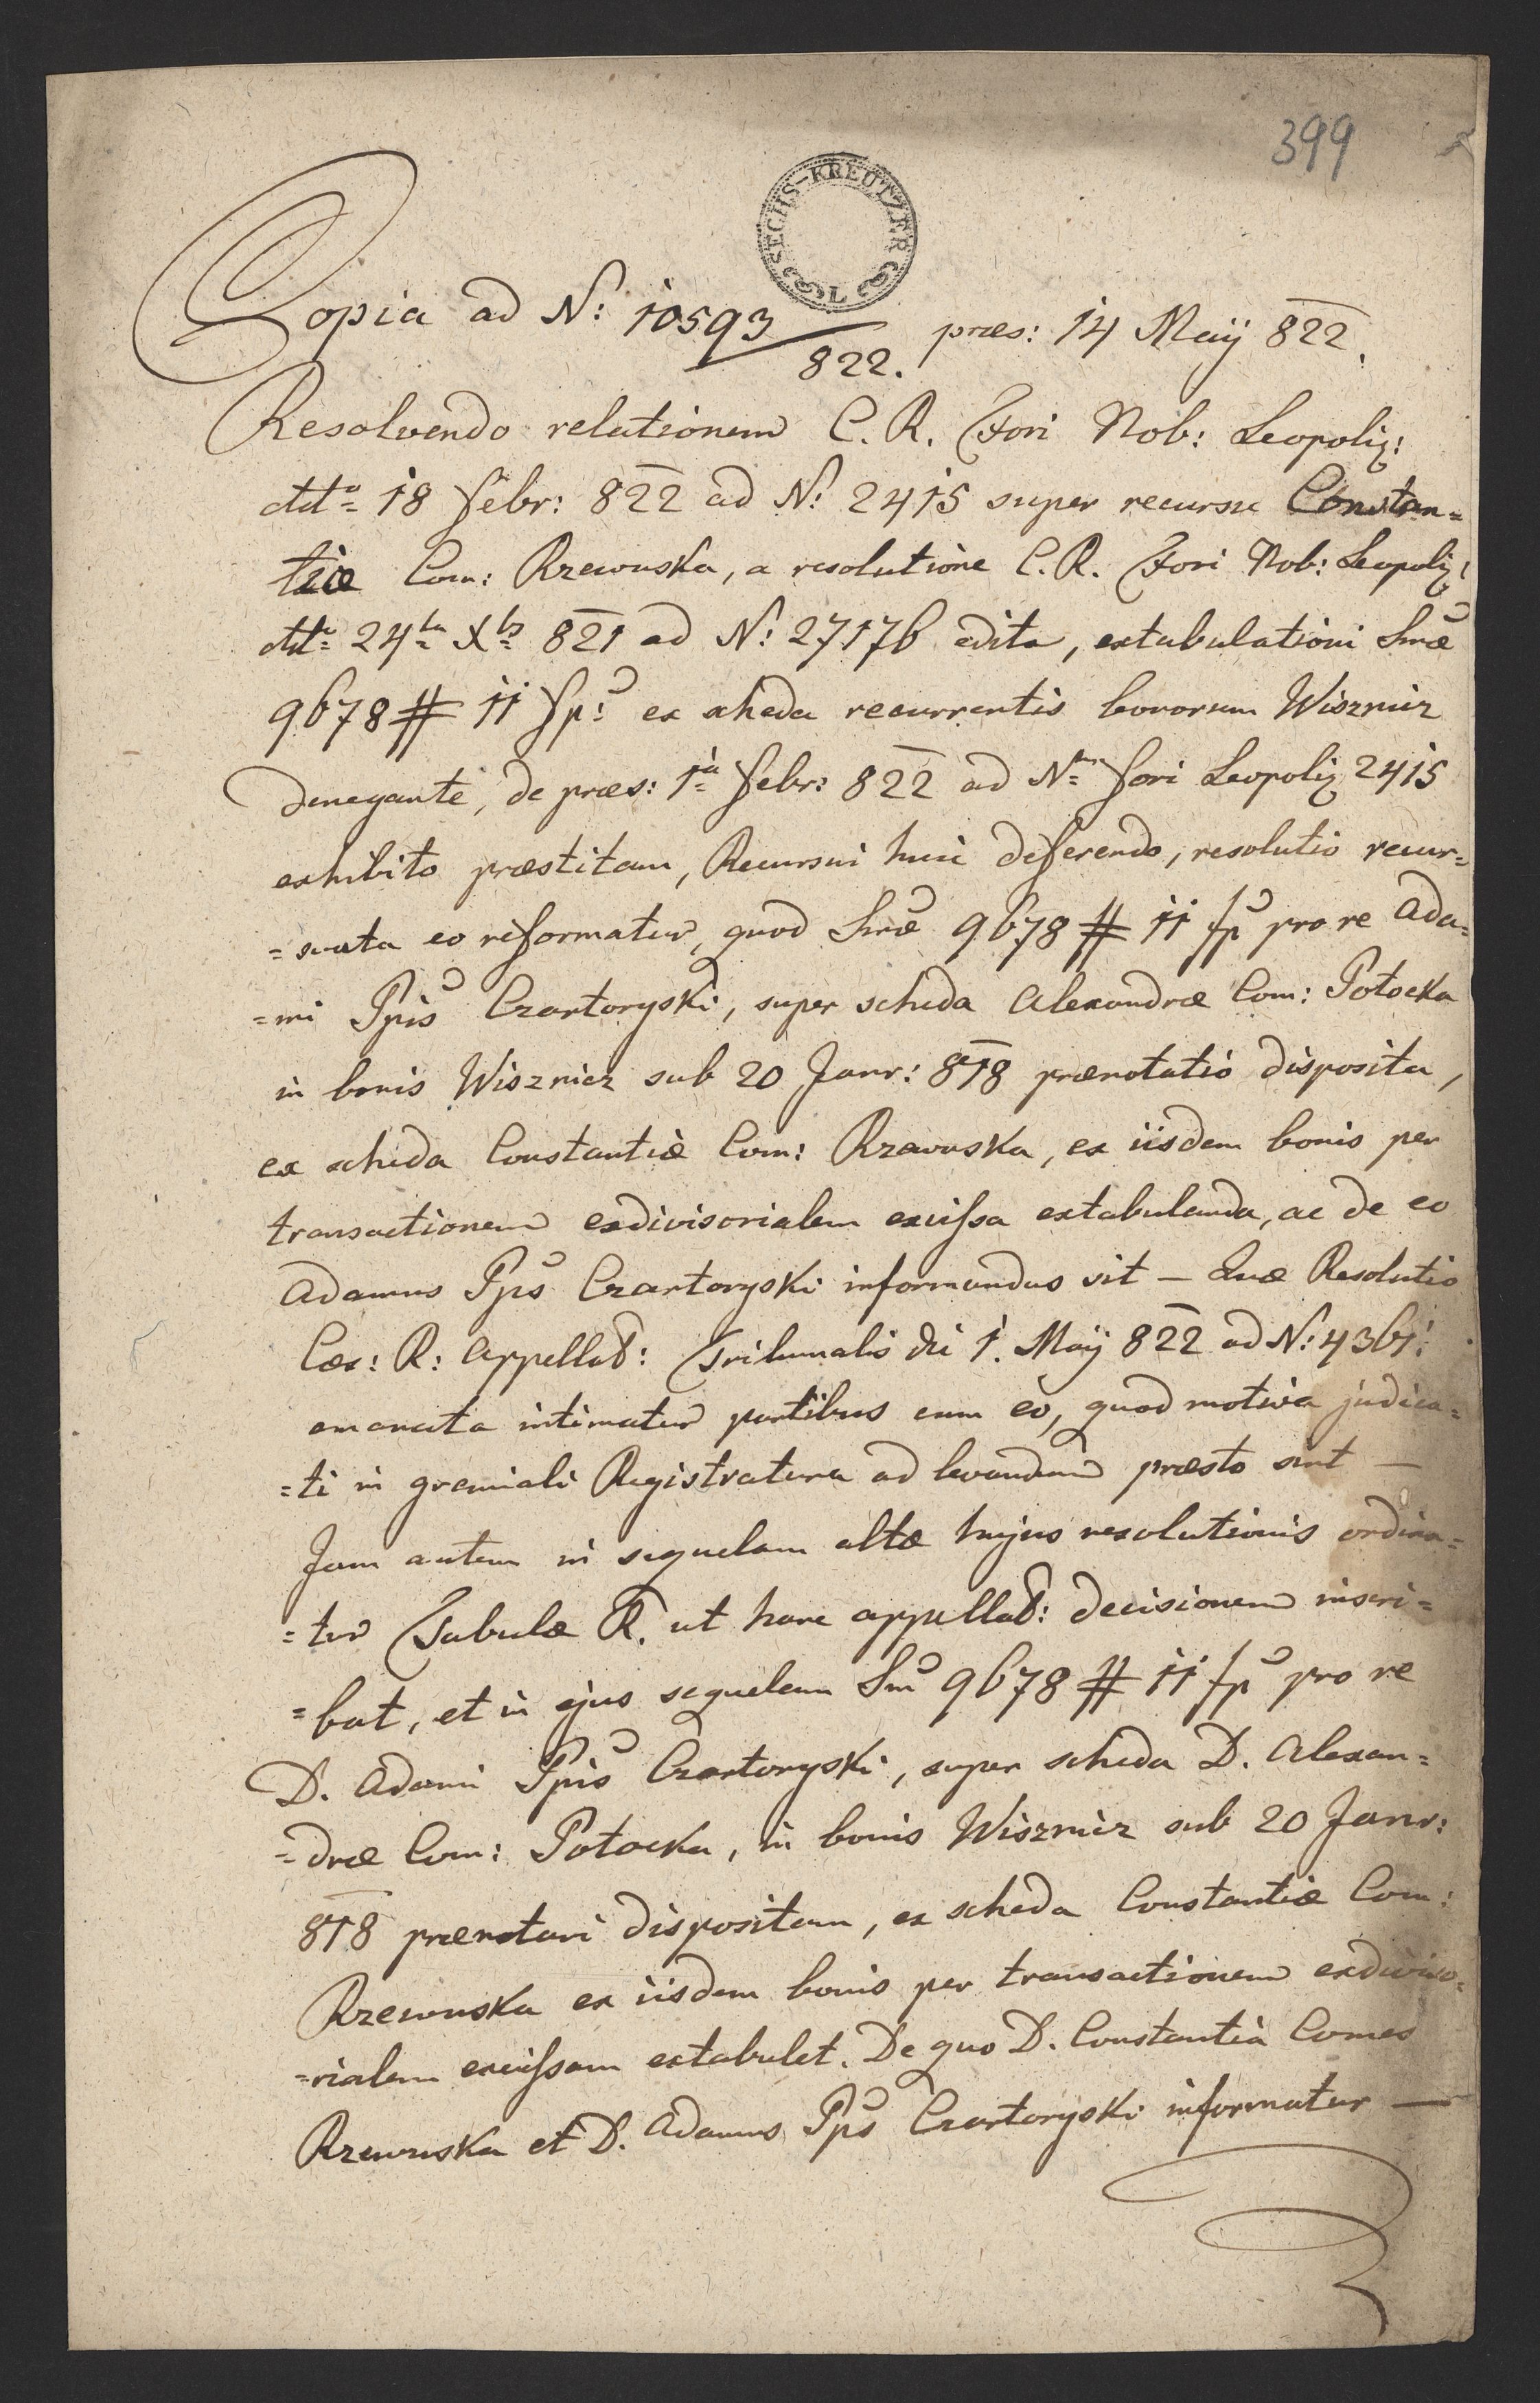 399
SECHS-KREUTZER
L
Copia ad N: 10593/822. præs: 14 Maij 822.
Resolvendo relationem C. R. Fori Nob: Leopoli:
ddto 18 Febr: 822 ad N: 2415 super recursu Constan=
tiæ Com: Rzewuska, a resolutione C. R. Fori Nob: Leopoli:
ddto 24ta Xbr 821 ad N: 27176 edita, extabulationi Smæ
9678 # 11 fp: ex scheda recurrentis bonorum Wisznicz
denegante, de præs: 1a Febr: 822 ad Nrum Fori Leopoli 2415
exhibito præstitam, Recursui huic deferendo, resolutio recur=
=suata eo reformatur, quod Smæ 9678 # 11 fp pro re Ada=
=mi Ppis Czartoryski, super scheda Alexandræ Com: Potocka
in bonis Wisznicz sub 20 Janr: 818 prænotatio disposita,
ex scheda Constantiæ Com: Rzewuska, ex iisdem bonis per
transactionem exdivisorialem excissa extabulanda, ac de eo
Adamus Pps Czartoryski informandus sit — Quæ Resolutio
Cæs: R: Appellat: Tribunalis dei 1. Maij 822 ad N: 4361:
emanata intimatur partibus cum eo, quod motiva judica=
=ti in gremiali Registratura ad levandum præsto sint —
Jam autem in sequelam altæ hujus resolutionis ordina=
=tur Tabulæ R. ut hanc appellat: decisionem inscri=
=bat, et in ejus sequelam Sm 9678 # 11 fp pro re
D. Adami Ppis Czartoryski, super scheda D. Alexan=
=dræ Com: Potocka, in bonis Wisznicz sub 20 Janr:
818 prænotari dispositam, ex scheda Constantiæ Com:
Rzewuska ex iisdem bonis per transactionem exdiviso=
=rialem excissam extabulet. De quo D. Constantia Comes
Rzewuska et D. Adamus Pps Czartoryski informatur —